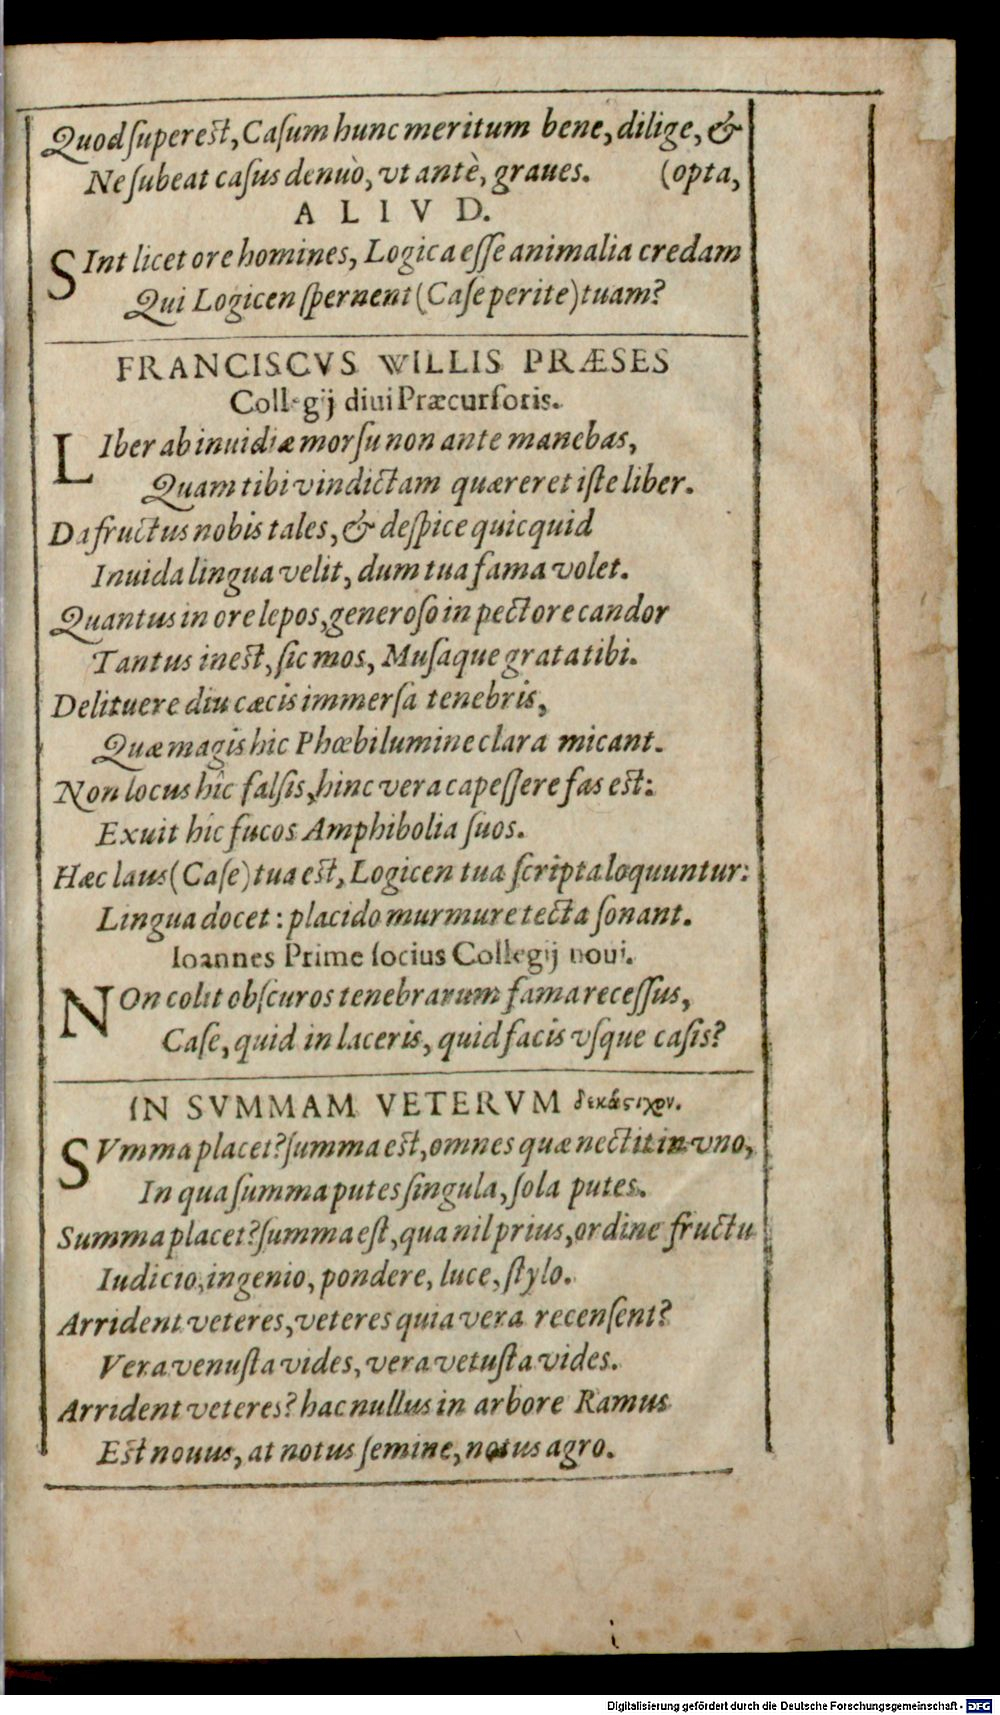 Quod ſupereſt, Caſum hunc meritum bene, dilige, &
Ne ſubeat caſus denuò, vt antè, graues. (opta,
ALIVD.
SInt licet ore homines, Logica eſſe animalia credam
Qui Logicen ſpernent (Caſe perite) tuam?
FRANCISCVS WILLIS PRÆSES
Collegij diui Præcurſoris.
LIber ab inuidiæ morſu non ante manebas,
Quam tibi vindictam quæreret iſte liber.
Da fructus nobis tales, & deſpice quicquid
Inuida lingua velit, dum tua fama volet.
Quantus in ore lepos, generoſo in pectore candor
Tantus ineſt, ſic mos, Muſaque grata tibi.
Delituere diu cæcis immerſa tenebris,
Quæ magis hic Phœbi lumine clara micant.
Non locus hîc falſis, hinc vera capeſſere fas eſt:
Exuit hic fucos Amphibolia ſuos.
Hæc laus (Caſe) tua eſt, Logicen tua ſcripta loquuntur:
Lingua docet: placido murmure tecta ſonant.
Ioannes Prime ſocius Collegij noui.
NOn colit obſcuros tenebrarum fama receſſus,
Caſe, quid in laceris, quid facis vſque caſis?
IN SVMMAM VETERVM δεκάςιχον.
SVmma placet? ſumma eſt, omnes quæ nectit in vno,
In qua ſumma putes ſingula, ſola putes.
Summa placet? ſumma eſt, qua nil prius, ordine fructu
Iudicio, ingenio, pondere, luce, ſtylo.
Arrident veteres, veteres quia vera recenſent?
Vera venuſta vides, vera vetuſta vides.
Arrident veteres? hac nullus in arbore Ramus
Eſt nouus, at notus ſemine, notus agro.
i
Digitalisierung gefördert durch die Deutsche Forschungsgemeinschaft - DFG